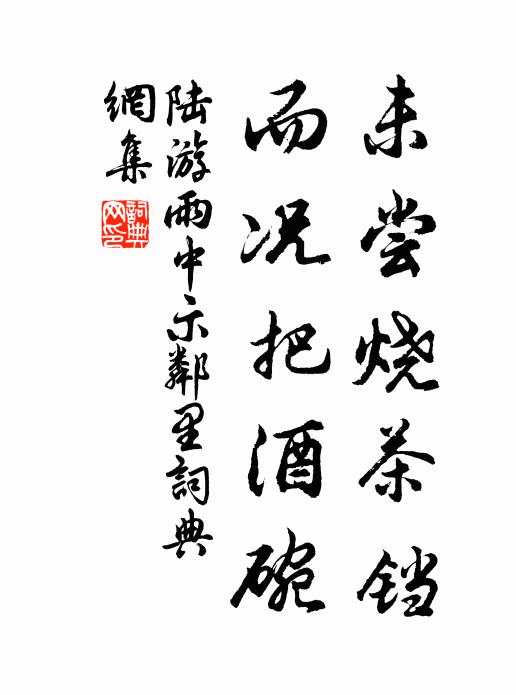 未尝烧茶铛
而况把酒碗
陆游雨中示鄰里詞典
網集
詞典網印